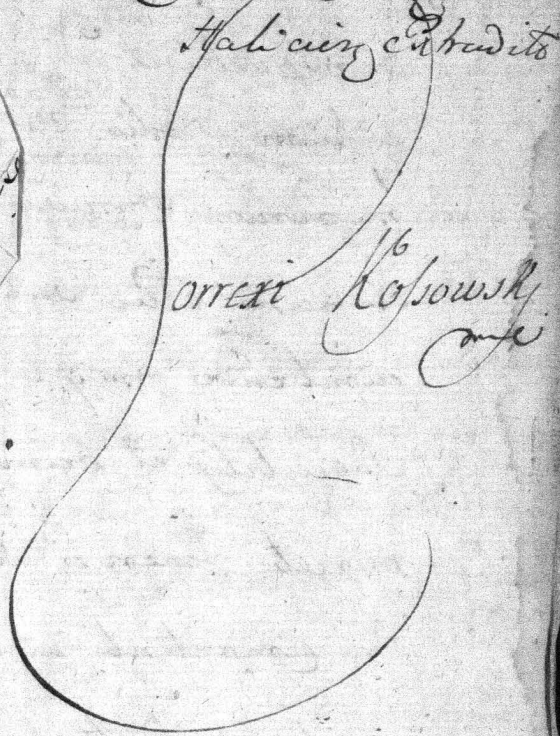 Halicien Extradito
Correxi Kossowski
mp